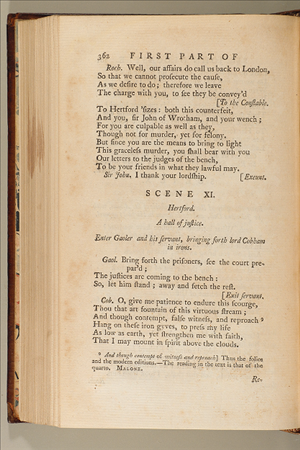 362 FIRST PART OF
Roch. Well, our affairs do call us back to London,
So that we cannot prosecute the cause,
As we desire to do; therefore we leave
The charge with you, to see they be convey'd
[To the Constable.
To Hertford 'sizes: both this counterfeit,
And you, sir John of Wrotham, and your wench;
For you are culpable as well as they,
Though not for murder, yet for felony.
But since you are the means to bring to light
This graceless murder, you shall bear with you
Our letters to the judges of the bench,
To be your friends in what they lawful may.
Sir John. I thank your lordship. [Exeunt.
SCENE XI.
Hertford.
A hall of justice.
Enter Gaoler and his servant, bringing forth lord Cobham
in irons.
Gaol. Bring forth the prisoners, see the court pre-
par'd;
The justices are coming to the bench:
So, let him stand; away and fetch the rest.
[Exit servant.
Cob. O, give me patience to endure this scourge,
Thou that art fountain of this virtuous stream;
And though contempt, false witness, and reproach 9
Hang on these iron gyves, to press my life
As low as earth, yet strengthen me with faith,
That I may mount in spirit above the clouds.
9 And though contempt of witness and reproach] Thus the folios
and the modern editions.—The reading in the text is that of the
quarto. MALONE.
Re-